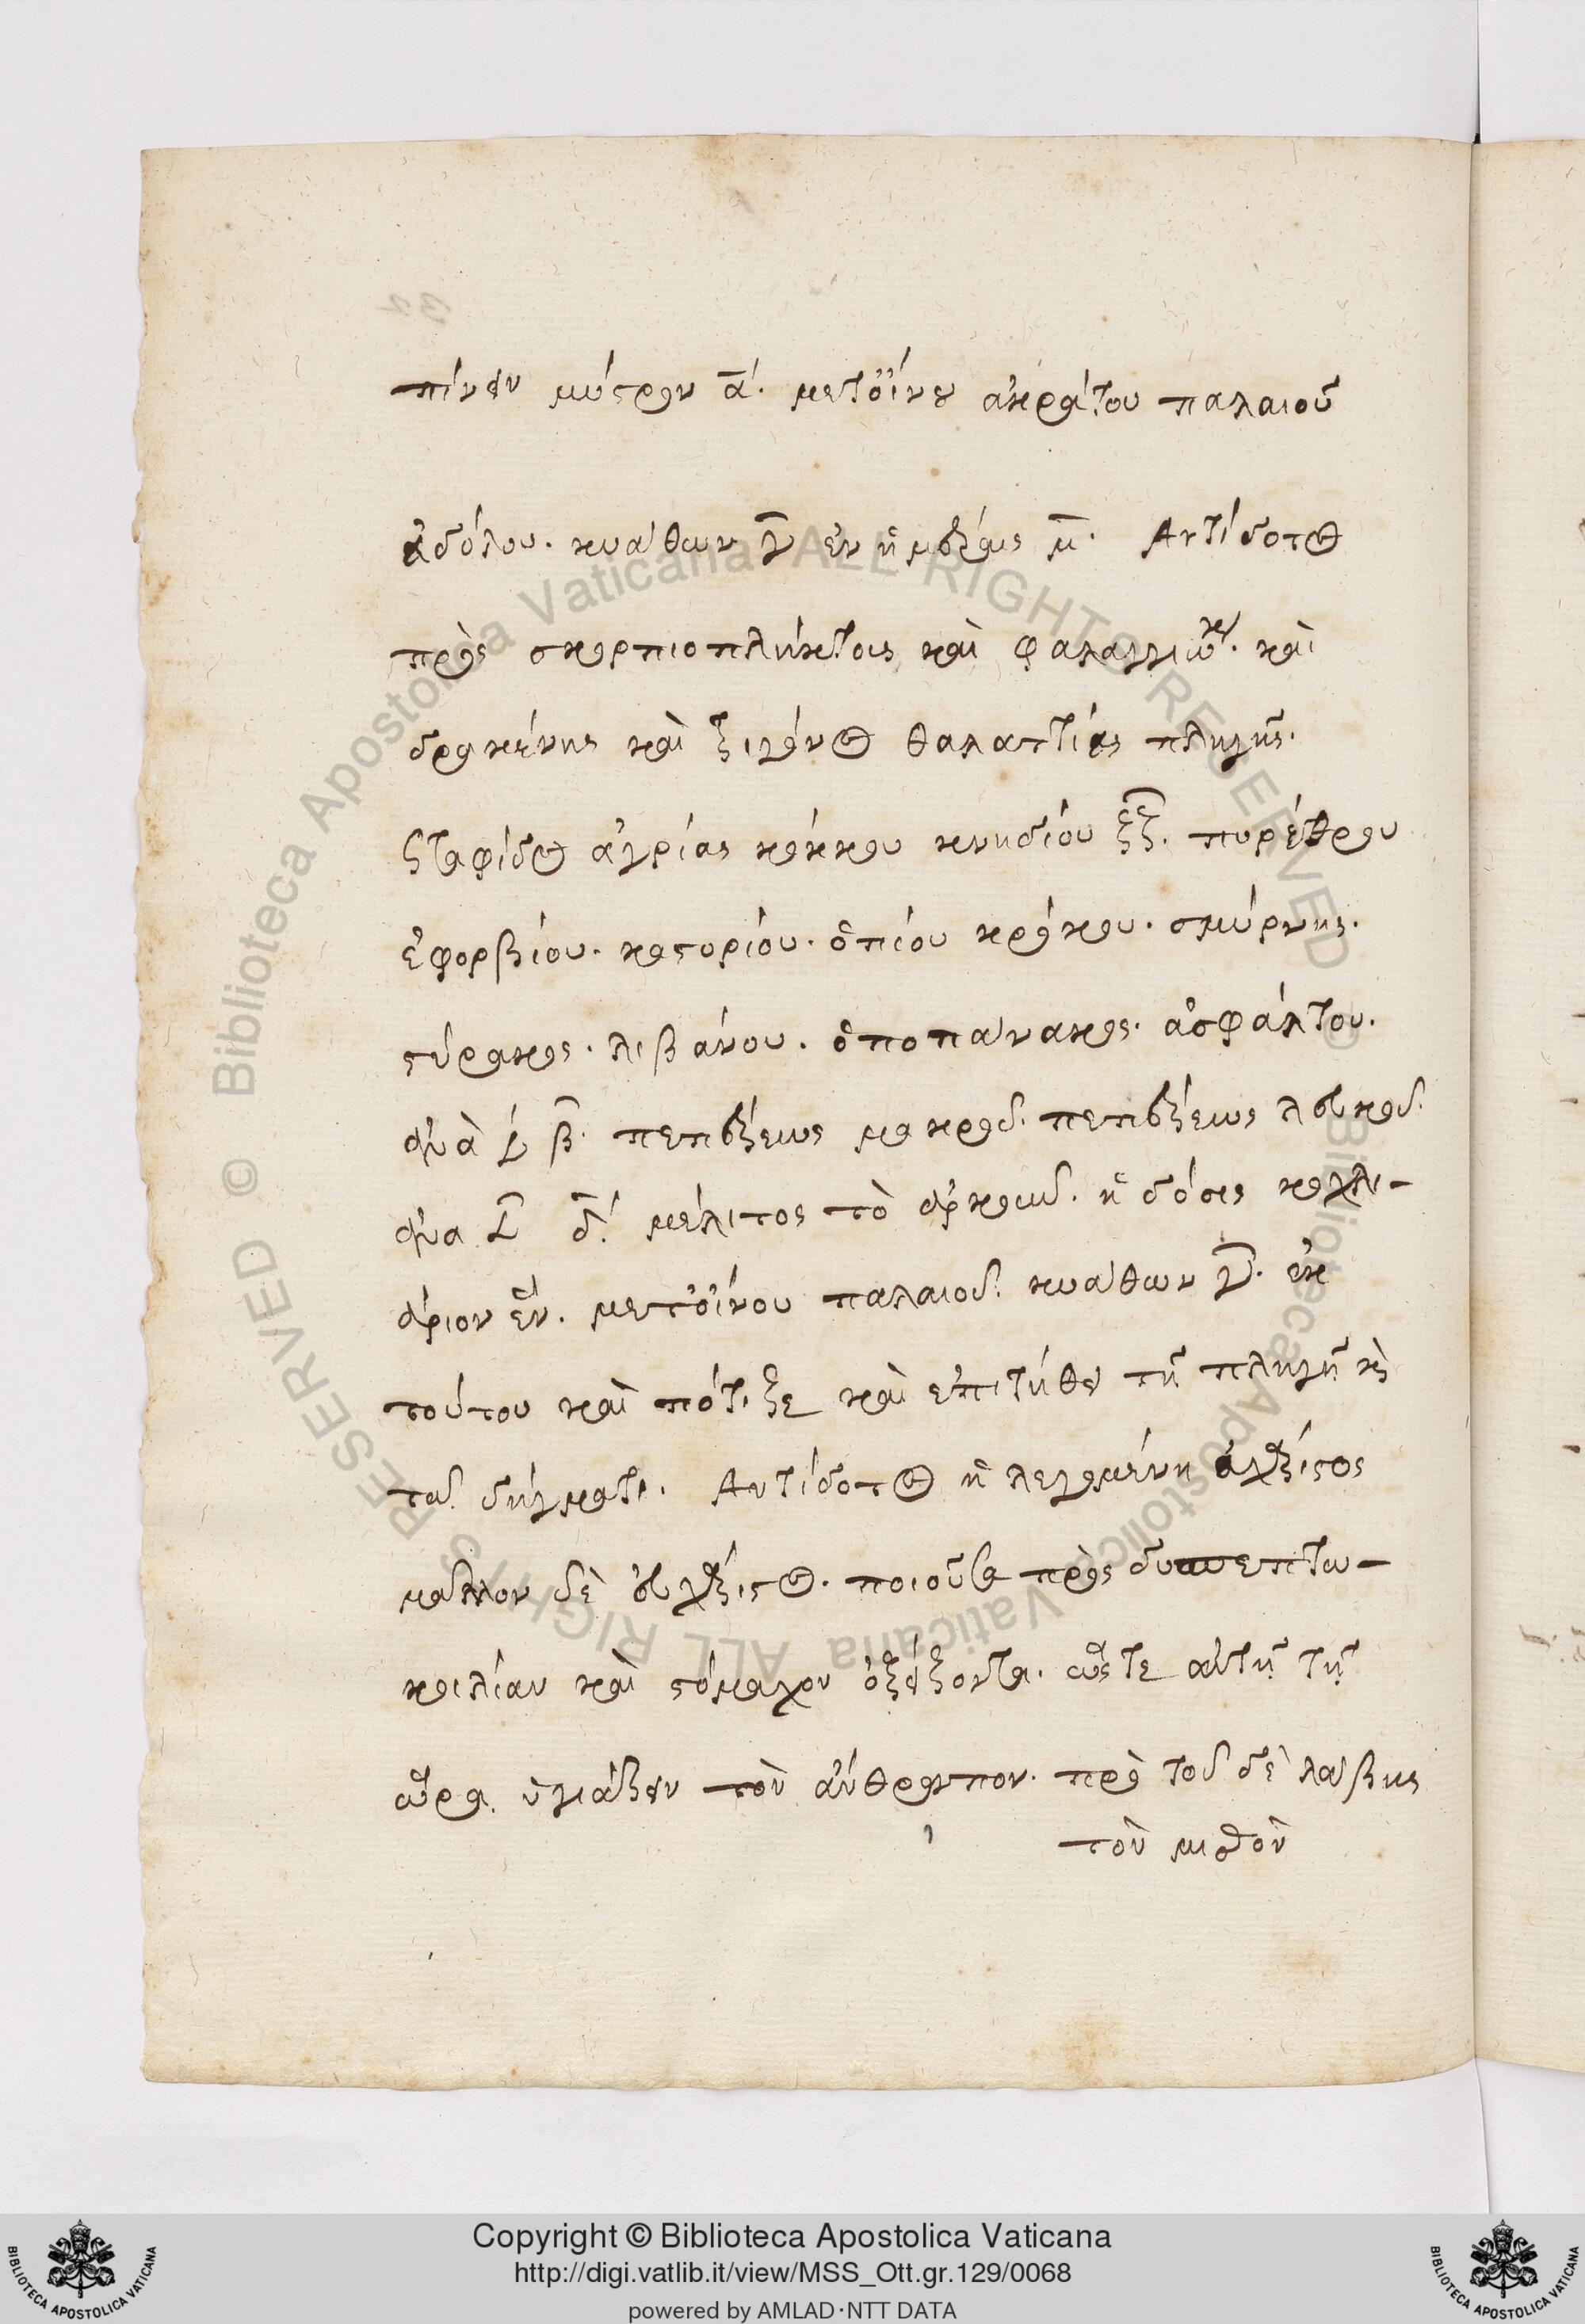 πίνειν μύστρον α̅. μετοΐνου ἀκράτου παλαιοῦ
ἀδόλου. κυάθων γ̅ ἐν ἡμέραις μ̅. Αντίδοτος
πρὸς σκορπιοπλήκτοις καὶ φαλαγγιω κ. καὶ
δρακαίνης καὶ τριγόνος θαλαττίας πληγῆς.
Σταφίδος ἀγρίας κόκκου κνηδίου ξξ. πυρέθρου
ἐφορβίου. καστορίου. ὀπίου κρόκου. σμύρνης.
στύρακος. λιβάνου. ὀποπάνακος. ἀσφάλτου.
ἀνὰ β̅. πεπέρεως μακροῦ. πεπέρεως λευκοῦ.
ἀνα δ̅. μέλιτος τὸ ἀρκοῦν. ἡ δόσις κοχλι-
άριον ἕν. μετοΐνου παλαιοῦ. κυάθων γ̅. ἐκ
τούτου καὶ πότιζε καὶ ἐπιτίθει τῇ πληγῇ κὶ
τῷ δήγματι. Αντίδοτος ἡ λεγομένη ἀχάριστος
μᾶλλον δὲ εὐχάριστος. ποιοῦσα πρὸς
κοιλίαν καὶ στόμαχον ὀξίζοντα. ὥστε αὐτῇ τῇ
ὥρα ὑγιάζειν τὸν ἄνθρωπον. πρὸ τοῦ δὲ λάβης
τὸν μισθὸν
Copyright © Biblioteca Apostolica Vaticana
http://digi.vatlib.it/view/MSS_Ott.gr.129/0068
powered by AMLAD·NTT DATA
BIBLIOTECA APOSTOLICA VATICANA
BIBLIOTECA APOSTOLICA VATICANA
© Biblioteca Apostolica Vaticana ALL RIGHTS RESERVED
© Biblioteca Apostolica Vaticana ALL RIGHTS RESERVED